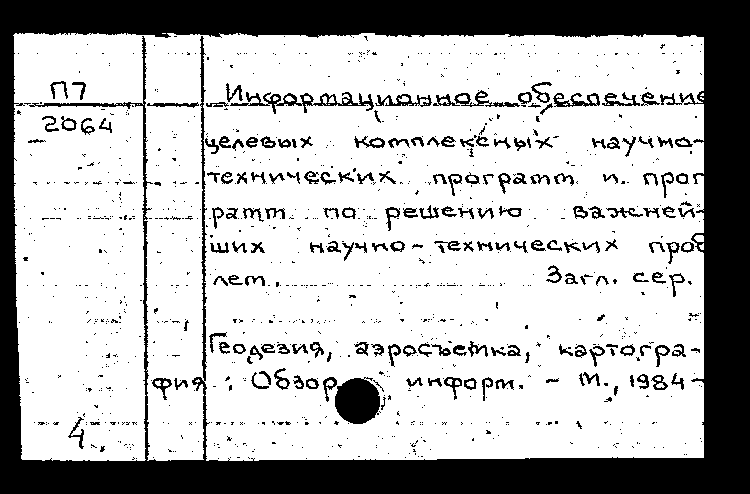 П7
2064
Информационное обеспечение
целевых комплексных научно-
технических программ и прог
рамм по решению важней-
ших научно-технических проб
лем. Загл. сер.
Геодезия, аэросъемка, картогра-
фия : Обзор. информ. - М., 1984-
4.